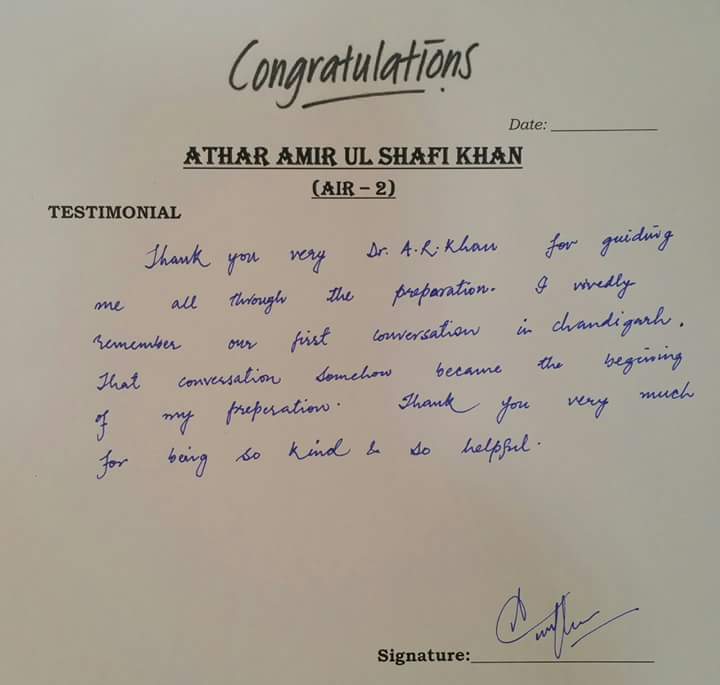 Congratulations
Date:
ATHAR AMIR UL SHAFI KHAN
(AIR – 2)
TESTIMONIAL
Thank you very Dr. A.R. Khan for guiding
me all through the preparation. I vivedly
remember our first conversation in chandigarh.
That conversation somehow became the begining
of my preperation. Thank you very much
for being so kind & so helpful.
Signature: